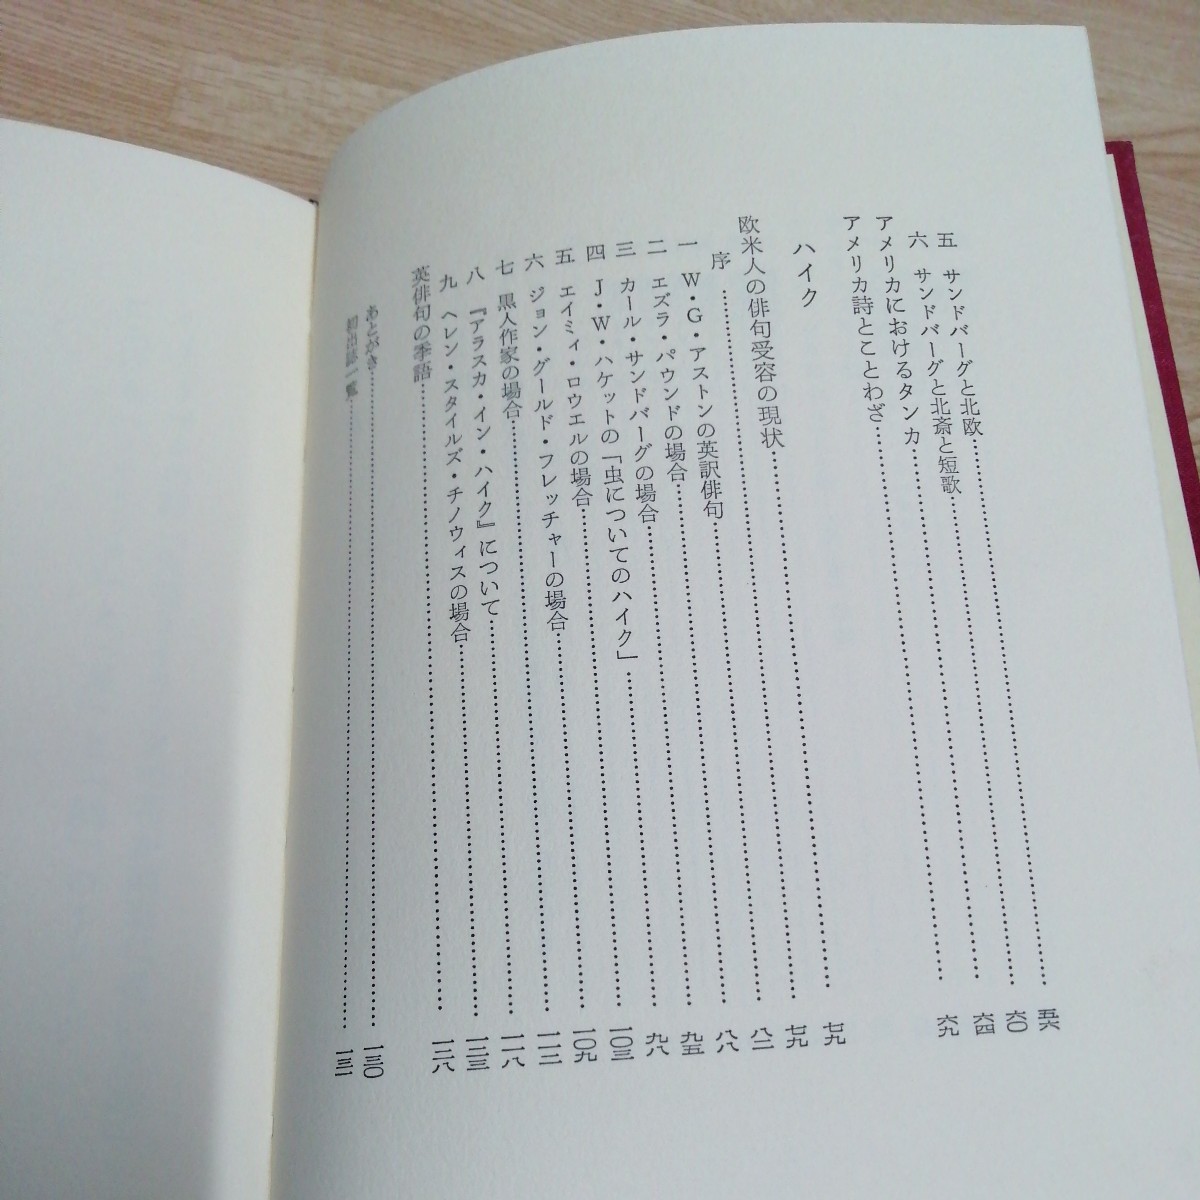 五 サンドバーグと北欧……五六
六 サンドバーグと北斎と短歌……六〇
アメリカにおけるタンカ……六四
アメリカ詩とことわざ……六九
ハイク
欧米人の俳句受容の現状……七九
序……七九
一 W・G・アストンの英訳俳句……八二
二 エズラ・パウンドの場合……八八
三 カール・サンドバーグの場合……九五
四 J・W・ハケットの「虫についてのハイク」……九八
五 エイミィ・ロウエルの場合……一〇三
六 ジョン・グールド・フレッチャーの場合……一〇九
七 黒人作家の場合……一一二
八 『アラスカ・イン・ハイク』について……一一八
九 ヘレン・スタイルズ・チノウィスの場合……一二三
英俳句の季語……一二八
あとがき……一三〇
初出誌一覧……一三一